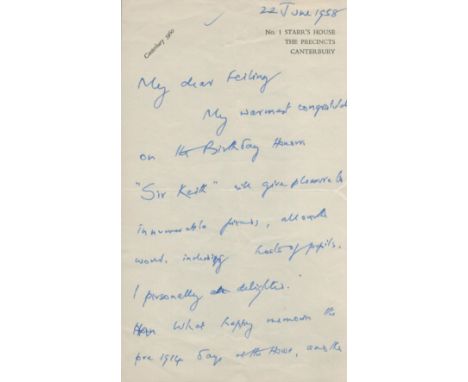 22 June 1958
Canterbury 3960
No. 1 STARR'S HOUSE
THE PRECINCTS
CANTERBURY
My dear Feiling
My warmest congratul
on the Birthday Honour
"Sir Keith" will give pleasure to
innumerable friends, all over the
world, including hosts of pupils.
I personally am delighted.
What happy memories the
pre 1914 days at the House, and the